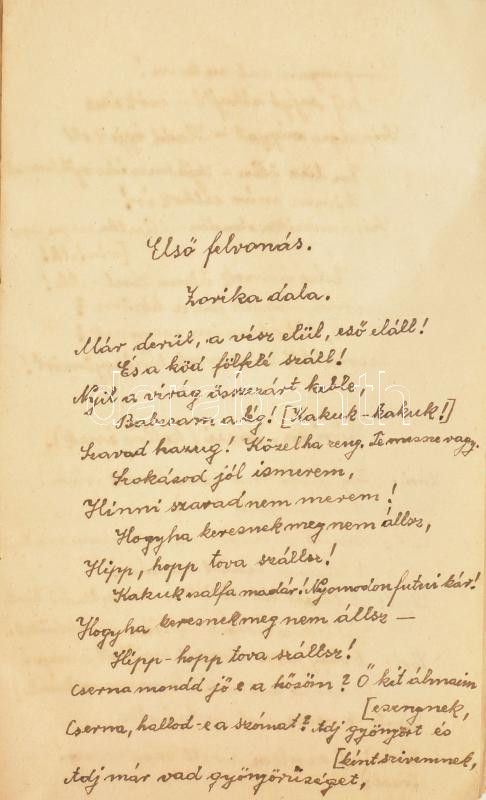 Első felvonás.
Zorika dala.
Már derül, a vész elül, eső eláll!
És a köd fölfelé száll!
Nyíl a virág összezárt keble,
Balzsam a lég! [Kakuk-kakuk!]
Szavad hazug! Közelha zeng. Te messze vagy.
Szokásod jól ismerem,
Hinni szavadnem merem!
Hogyha keresnek meg nem állsz,
Hipp, hopp tova szállsz!
Kakuk csalfa madár! Nyomodon futni kár!
Hogyha keresnek meg nem állsz —
Hipp-hopp tova szállsz!
Cserna mondd jő e a hősöm? Ő kit álmaim
[esengnek,
Cserna, hallod-e a szómat? Adj gyönyört és
[kínt szivemnek,
Adj már vad gyönyörűséget,
darabanth